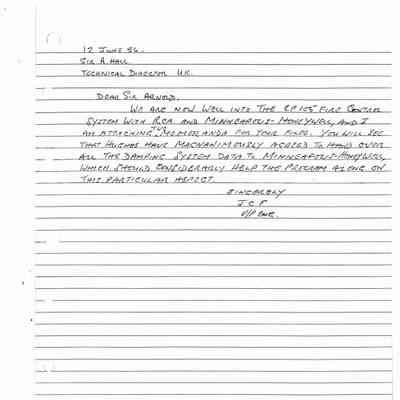 12 JUNE 56.
SIR A. HALL
TECHNICAL DIRECTOR U.K.
DEAR SIR ARNOLD.
WE ARE NOW WELL INTO THE CF 105 FIRE CONTROL
SYSTEM WITH RCA AND MINNEAPOLIS-HONEYWELL, AND I
AM ATTACHING TWO MEMORANDA FOR YOUR FILES. YOU WILL SEE
THAT HUGHES HAVE MAGNANIMOUSLY AGREED TO HAND OVER
ALL THE DAMPING SYSTEM DATA TO MINNEAPOLIS-HONEYWELL,
WHICH SHOULD CONSIDERABLY HELP THE PROGRAM ALONG ON
THIS PARTICULAR ASPECT.
SINCERELY
J C F